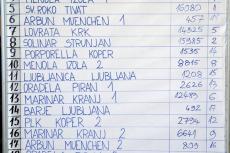 5 SV. ROKO TIVAT 16080 3
6 ARBUN MUENCHEN 1 457
7 LOVRATA KRK 14325 5
8 SOLINAR STRUNJAN 5355
9 PORPORELLA KOPER 1535 14
10 MENDOLA IZOLA 2 8815 8
11 LJUBLJANICA LJUBLJANA 1208 15
12 DRADELA PIRAN 1 2626 13
13 MARINAR KRANJ 1 12489 6
14 BARJE LJUBLJANA 492
15 PLK KOPER 2 2794 12
16 MARINAR KRANJ 2 6641 9
17 ARBUN MUENCHEN 2 809 16